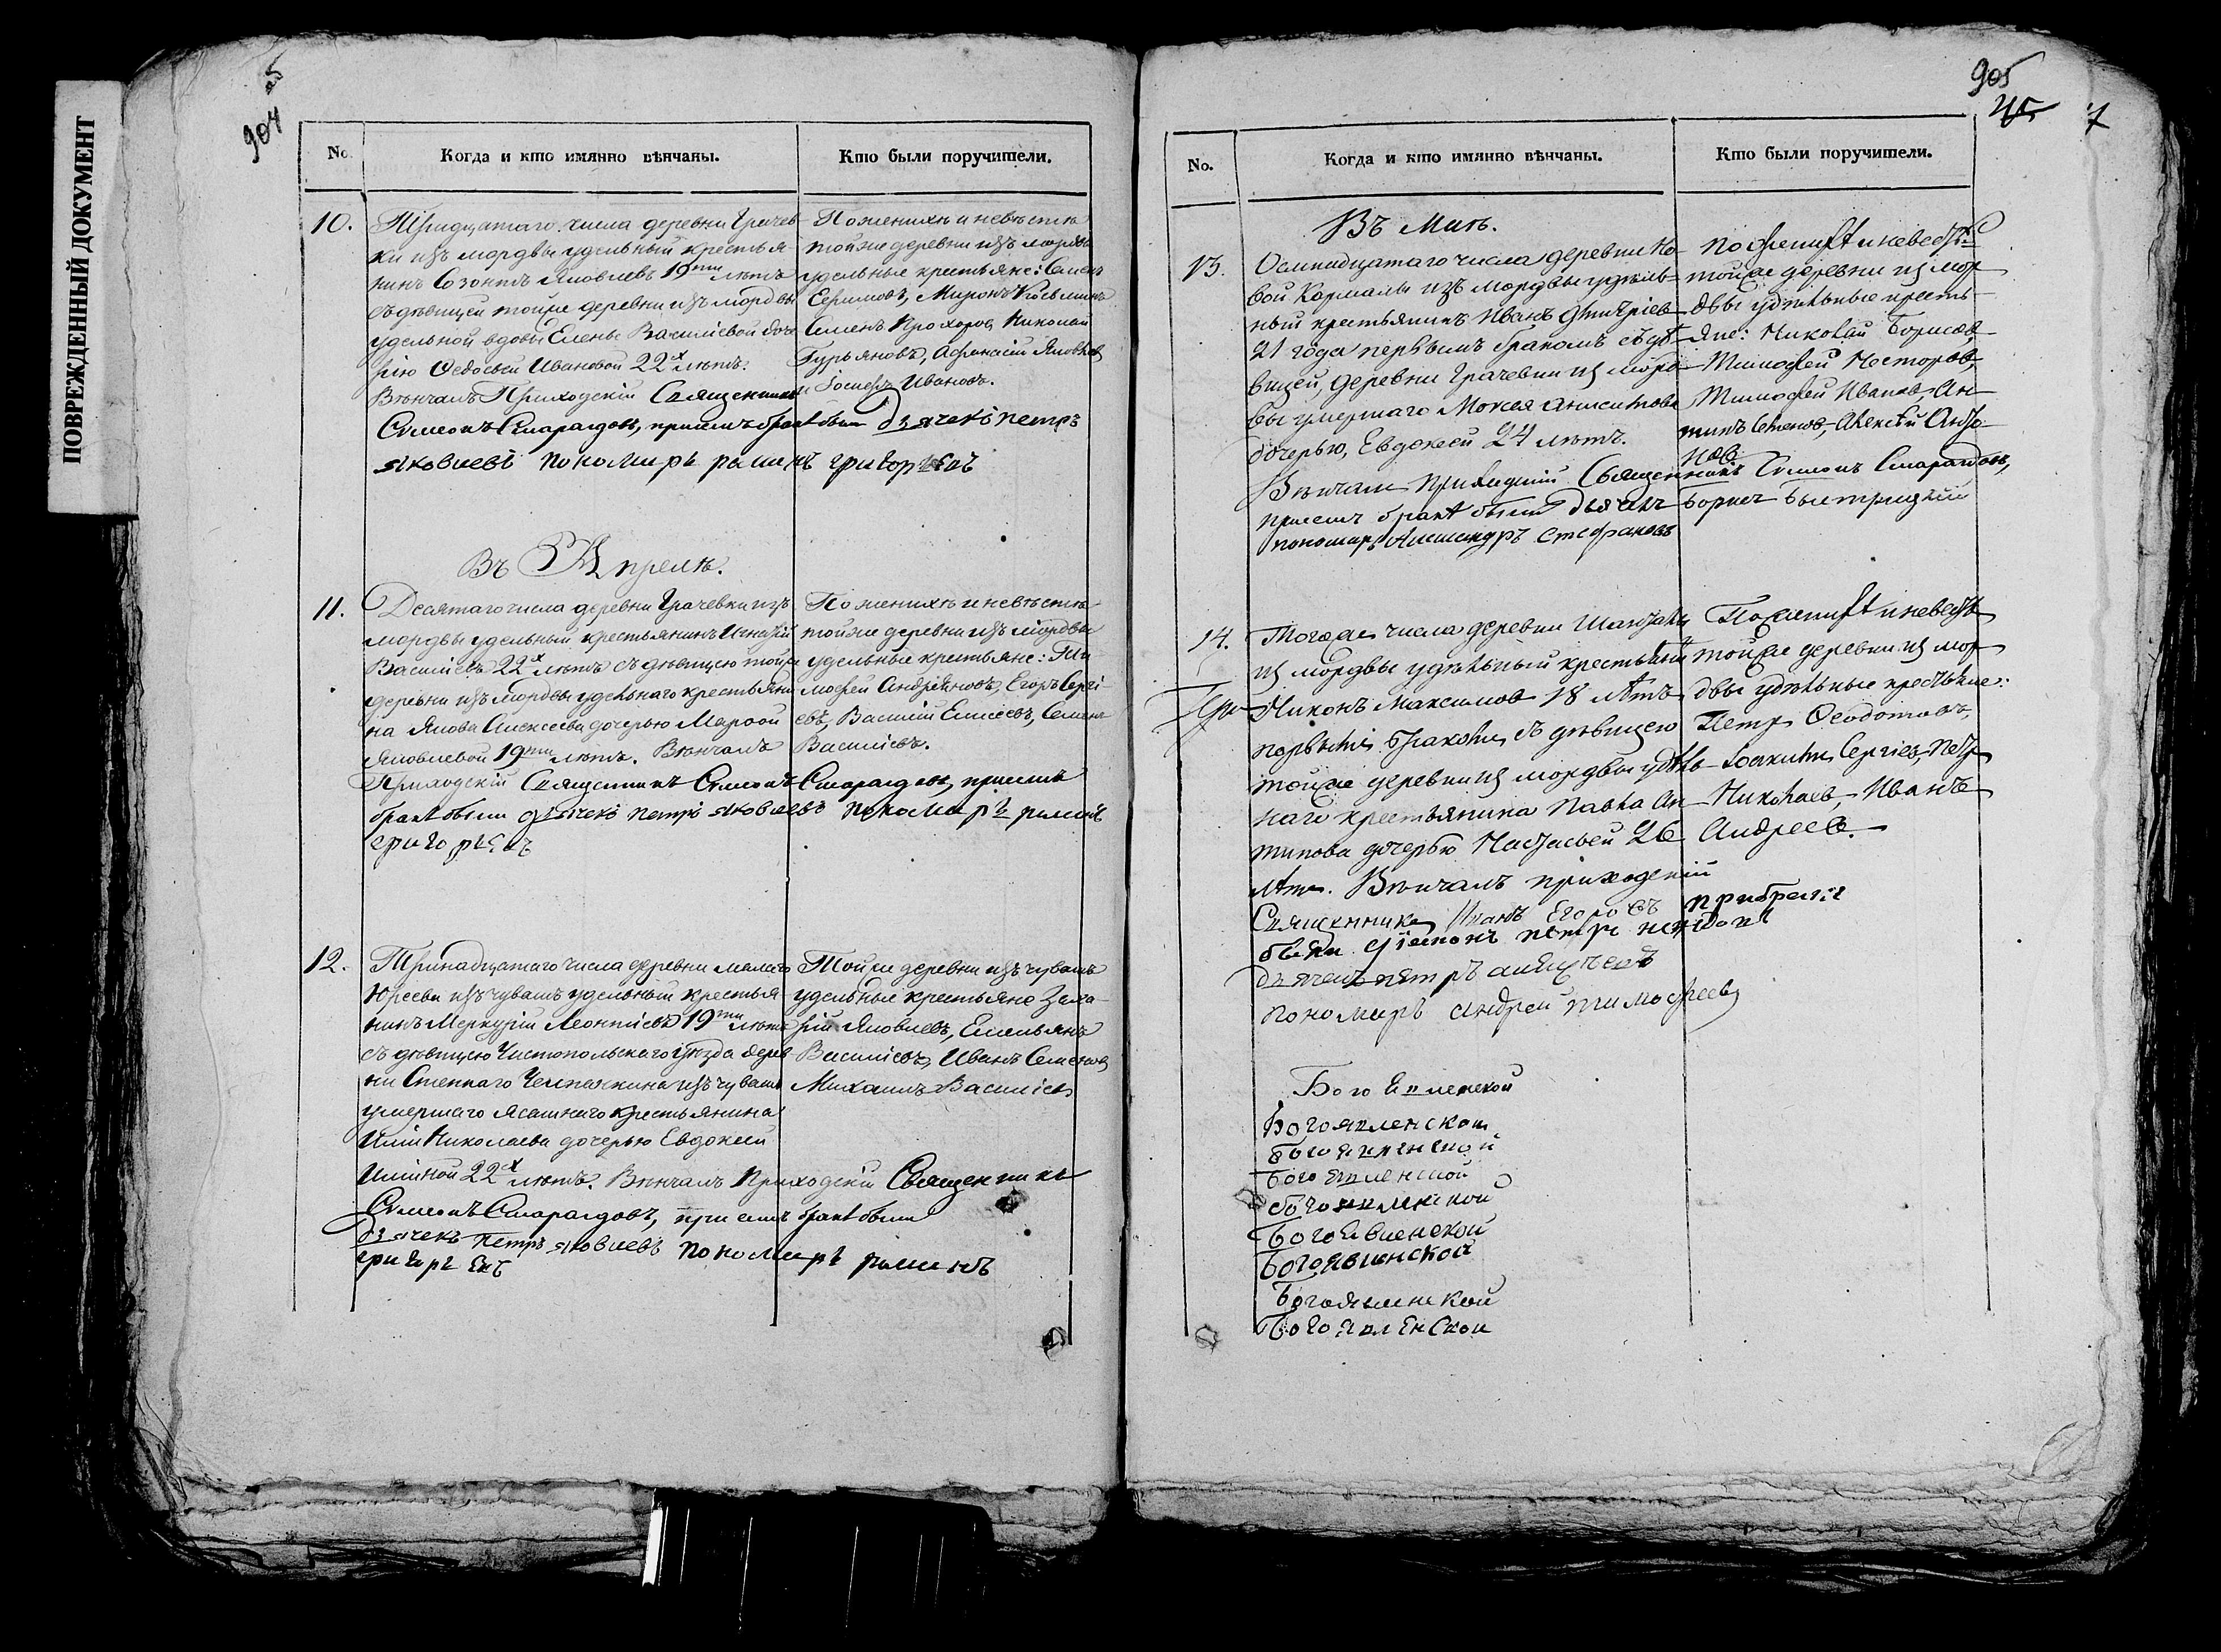 ПОВРЕЖДЕННЫЙ ДОКУМЕНТ
5
904
No. Когда и кто имянно вѣнчаны. Кто были поручители.
10.
Тридцатаго числа деревни Грачев-
ки изъ мордвы удельный крестья-
нинъ Созонтъ Яковлевъ 19ти лѣтъ
съ дѣвицей тойже деревни изъ мордвы
удельной вдовы Елены Василиевой доче
рію Ѳедосьей Ивановой 22х лѣтъ.
Вѣнчалъ Приходскій Священникъ
Симеонъ Смарагдовъ, при семъ бракѣ были дьячекъ петръ
яковлевъ пономарь романъ григорьевъ
По женихѣ и невѣстѣ
тойже деревни изъ мордвы
удельные крестьяне: Семенъ
Ефимовъ, Миронъ Козьминъ
Семенъ Прохоровъ, Николай
Гурьяновъ, Афанасій Яковлев,
и Іосифъ Ивановъ.
Въ Апрелѣ.
11.
Десятаго числа деревни Грачевки изъ
мордвы удельный крестьянинъ Игнатій
Василиевъ 22х лѣтъ съ дѣвицею тойже
деревни изъ мордвы удельнаго крестьяни
на Якова Алексеева дочерью Марѳой
Яковлевой 19ти лѣтъ. Вѣнчалъ
Приходскій Священникъ Симеонъ Смарагдовъ, при семъ
бракѣ были дьячекъ петръ яковлевъ пономарь романъ
григорьевъ
По женихѣ и невѣстѣ
тойже деревни изъ мордвы
удельные крестьяне: Ти-
мофей Андреяновъ, Егоръ Сергі-
евъ, Василій Елисеевъ, Семенъ
Василиевъ.
12.
Тринадцатаго числа деревни малаго
Юреева изъ чувашъ удельный крестья
нинъ Меркурій Леонтіевъ 19ти лѣтъ
съ дѣвицею Чистопольскаго уѣзда дерев
ни Степнаго изъ чувашъ
умершаго ясашнаго крестьянина
Ильи Николаева дочерью Евдокией
Ильиной 22х лѣтъ. Вѣнчалъ Приходскій Священникъ
Симеонъ Смарагдовъ, при семъ бракѣ были
дьячекъ петръ яковлевъ пономарь романъ
григорьевъ
Тойже деревни изъ чувашъ
удельные крестьяне Заха-
рій Яковлевъ, Емельянъ
Василиевъ, Иванъ Семенов,
Михаилъ Василіевъ
905
7
No. Когда и кто имянно вѣнчаны. Кто были поручители.
Въ Маіѣ.
13.
Осмнадцатаго числа деревни но-
вой Кармалы изъ мордвы удѣль-
ный крестьянинъ Иванъ Дмитріев
21 года первымъ бракомъ съ дѣ-
вицей, деревни Грачевки из морд-
вы умершаго Моисея Анисимова
дочерью, Евдокеей 24 лѣтъ.
Вѣнчалъ приходский Священникъ Симеонъ Смарагдовъ,
при семъ бракѣ были дьячекъ Борис Быстрицкій
пономарь Александръ Стефановъ
По женихѣ и невѣстѣ
тойже деревни из мор
двы удѣльные кресть-
яне: Николай Борисов,
Тимофей Несторов,
Тимофей Иванов, Ан-
типъ Семенов, Алексѣй Анто-
нов
14.
Тогоже числа деревни Шантала
из мордвы удѣльный крестьянин
Никонъ Максимов 18 лѣтъ
первымъ бракомъ съ дѣвицею
тойже деревни из мордвы удѣль-
наго крестьянина Павла Ан-
типова дочерью Настасьей 26
лѣтъ. Вѣнчалъ приходскій
Священникъ Иванъ Егоровъ при браке
были диаконъ петръ
дьячекъ петръ алексѣевъ
пономарь андрей тимофеевъ
По женихѣ и невѣстѣ
тойже деревни из мор
двы удѣльные крестьяне:
Петръ Ѳеодотовъ,
Іоакимъ Сергіев, Петр
Николаев, Иванъ
Андреев.
Богоявленской
Богоявленской
Богоявленской
Богоявленской
богоявленской
Богоявленской
Богоявленской
Богоявленской
Богоявленской